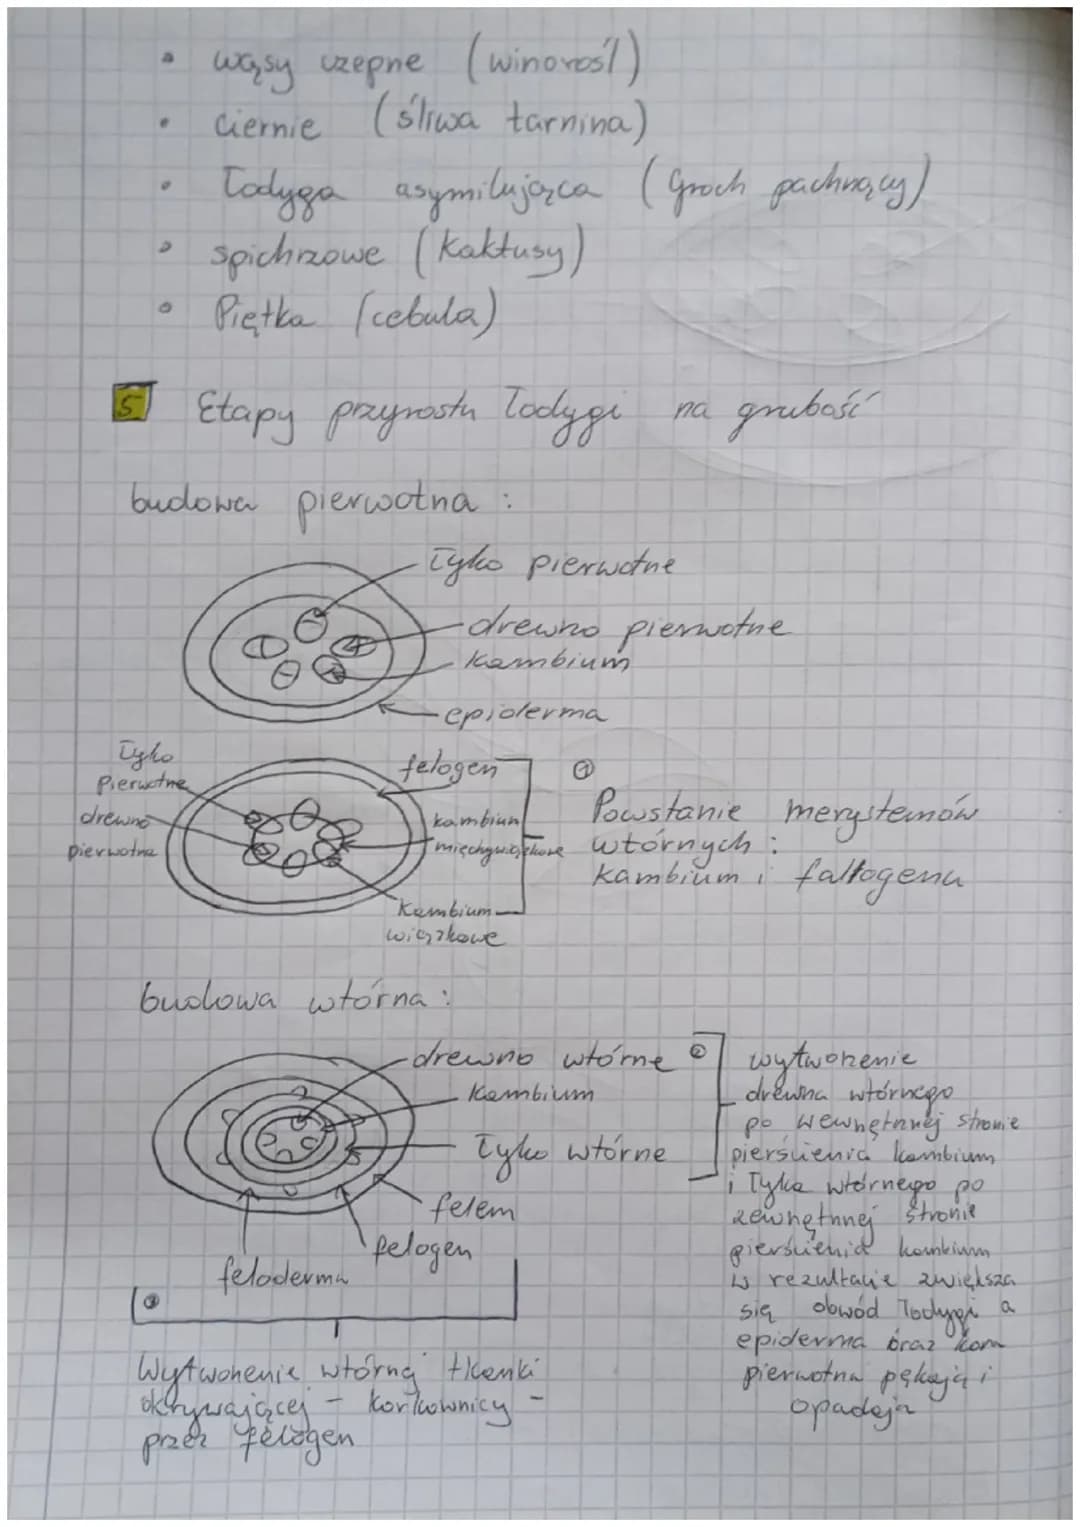 • wąsy czepne (winorośl)
• ciernie (śliwa tarnina)
• Łodyga asymilująca (Groch pachnący)
• spichrzowe (Kaktusy)
• Piętka (cebula)
5 Etapy przyrostu łodygi na grubość
budowa pierwotna :
Łyko pierwotne
drewno pierwotne
kambium
epiderma
Łyko
pierwotne
drewno
pierwotna
felogen
kambium
międzywiązkowe
Kambium
wiązkowe
①
Powstanie merystemów
wtórnych :
kambium i fallogenu
budowa wtórna :
drewno wtórne
Kambium
Łyko wtórne
felem
felogen
feloderma
②
wytworzenie
drewna wtórnego
po wewnętrznej stronie
pierścienia kambium
i Łyka wtórnego po
zewnętrznej stronie
pierścienia kambium
W rezultacie zwiększa
się obwód Łodygi a
epiderma oraz kora
pierwotna pękają i
opadają
③
Wytworzenie wtórnej tkanki
okrywającej - korkownicy -
przez felogen